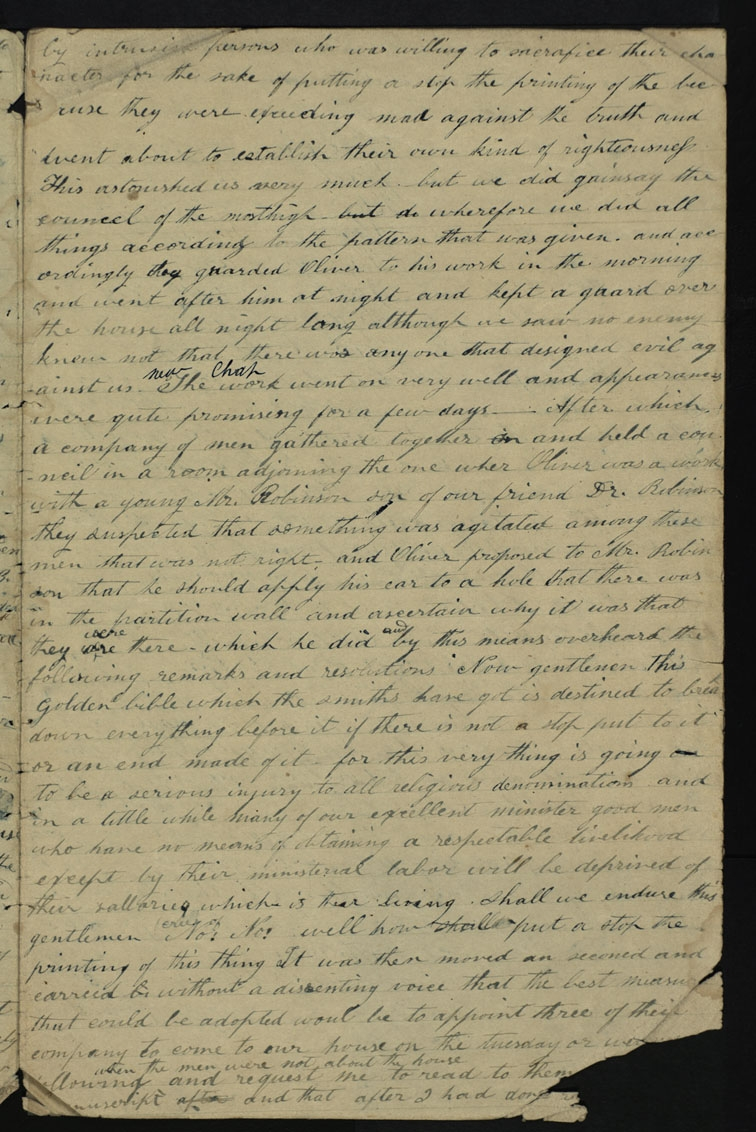 by intrusive persons who was willing to sacrafice their cha
racter for the sake of putting a stop the printing of the bec
ause they were exceeding mad against the truth and
went about to establish their own kind of righteousness
This astonished us very much but we did gainsay the
councel of the mosthigh but do wherefore we did all
things according to the pattern that was given. and acc
ordingly they guarded Oliver to his work in the morning
and went after him at night and kept a guard over
the house all night long although we saw no enemy
knew not that there was any one that disigned evil ag
ainst us. new Chap The work went on very well and appearances
were qute promising for a few days— After which
a company of men gathered together in and held a cou
-neil in a room adjoning the one wher Oliver was a work
with a young Mr. Robinson son of our friend Dr. Robinson
they suspected that something was agitated among these
men that was not right- and Oliver proposed to Mr. Robin
son that he should apply his ear to a hole that there was
in the partition wall and ascertain why it was that
they are were there - which he did and by this means overheard the
following remarks and resolutions Now gentlemen this
Golden bible which the smiths have got is destined to break
down every thing before it if there is not a stop put to it
or an end made of it- for this very thing is going
to be a serious injury to all religious denominations and
in a little while many of our excellent minister good men
who have no means of obtaining a respectable livelihood
except by their ministerial labor will be deprived of
their sallaries which is their living. Shall we endure this
gentlemen No! No! well how shall put a stop the
printing of this thing It was then moved an seconed and
carried without a disenting voice that the best measure
that could be adopted woul be to appoint three of their
company to come to our house on the tuesday or
when the men were not about the house
ollowing and request me to read to them
nuscript after and that after I had done